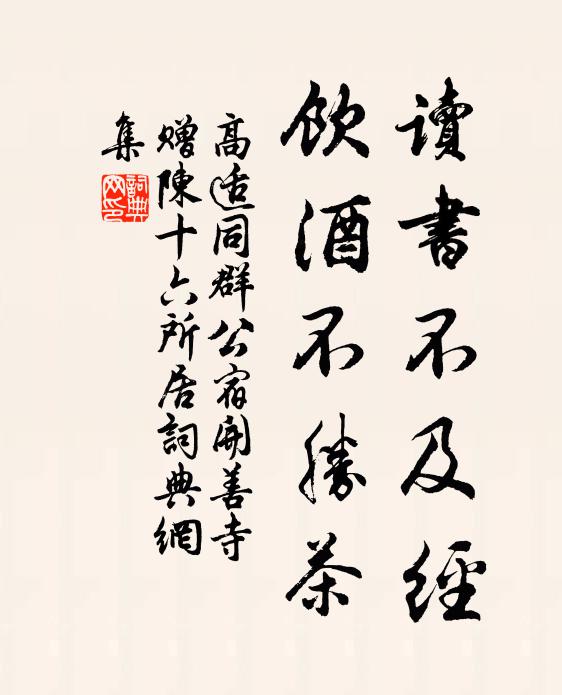 讀書不及經
飲酒不勝茶
高适同群公宿開善寺
贈陳十六所居詞典網
集
詞典
网印